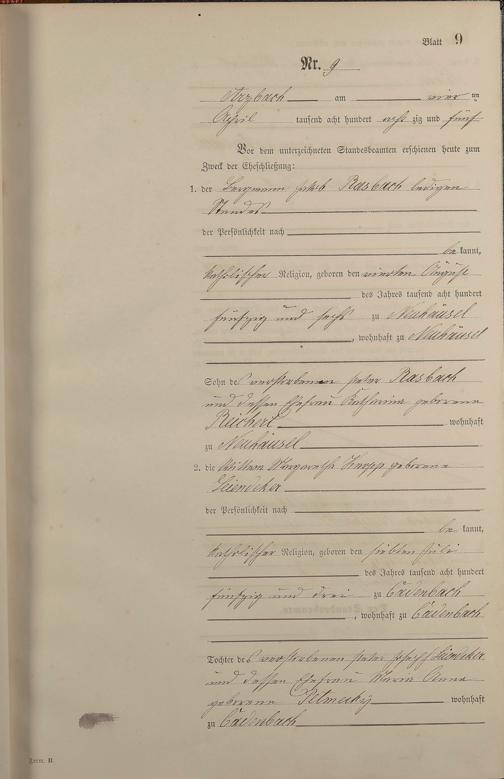 Blatt 9
Nr. 9
Arzbach am vier ten
April tausend acht hundert acht zig und fünf
Vor dem unterzeichneten Standesbeamten erschienen heute zum
Zweck der Eheschließung:
1. der Bergmann Jakob Rasbach ledigen
Standes
der Persönlichkeit nach
be kannt,
katholischer Religion, geboren den vierten August
des Jahres tausend acht hundert
fünfzig und sechs zu Neuhäusel
, wohnhaft zu Neuhäusel
Sohn des verstorbenen Peter Rasbach
und dessen Ehefrau Katharina geborene
Reichert wohnhaft
zu Neuhäusel
2. die Wittwe Margaretha Knopp geborene
der Persönlichkeit nach
be kannt,
katholischer Religion, geboren den siebten Juli
des Jahres tausend acht hundert
fünfzig und drei zu Cadenbach
, wohnhaft zu Cadenbach
Tochter des verstorbenen Peter Joseph
und dessen Ehefrau Maria Anna
geborene wohnhaft
zu Cadenbach
Form. B.